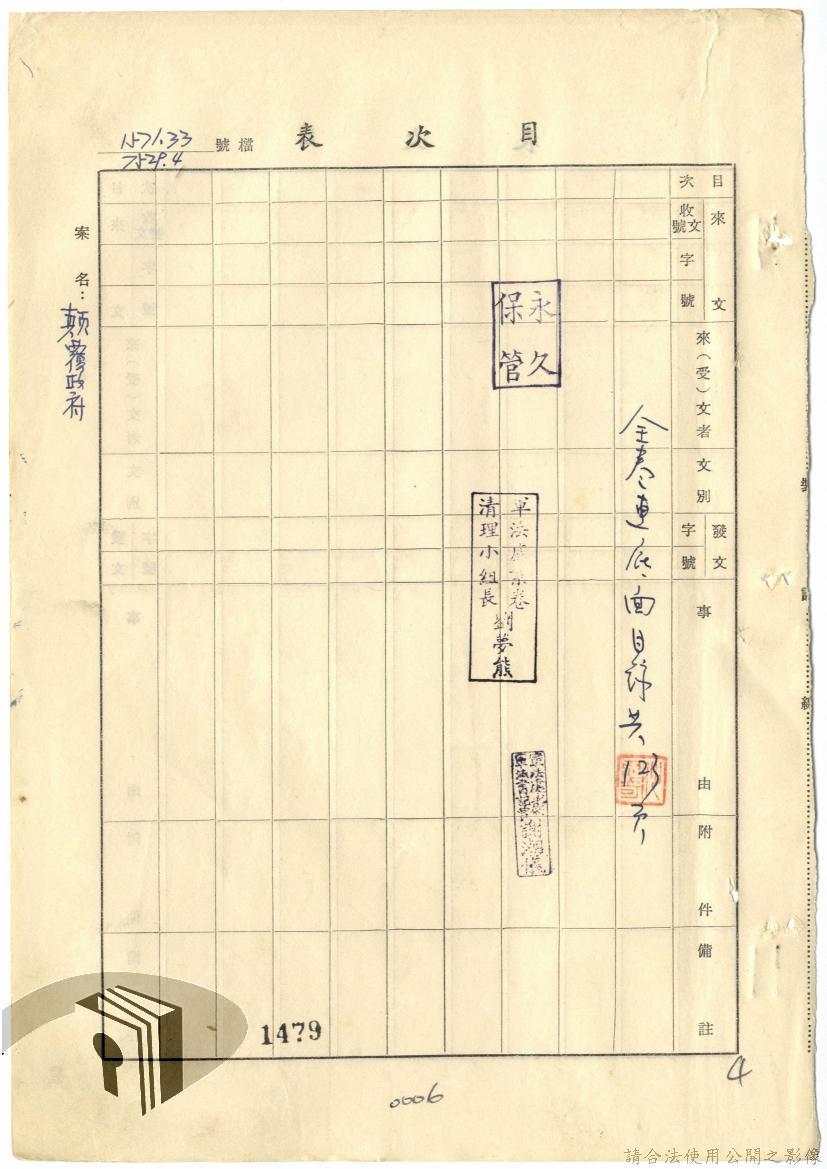 目次表
檔號
1571.33
7529.4
案名：顛覆政府
目次
來文
收文號
字號
來（受）文者
文別
發文
字號
事由
附件
備註
全卷連底面目錄共123頁
永久保管
軍法處案卷
清理小組長 劉夢熊
謝湖儀
1479
0006
4
裝
訂
線
請合法使用公開之影像